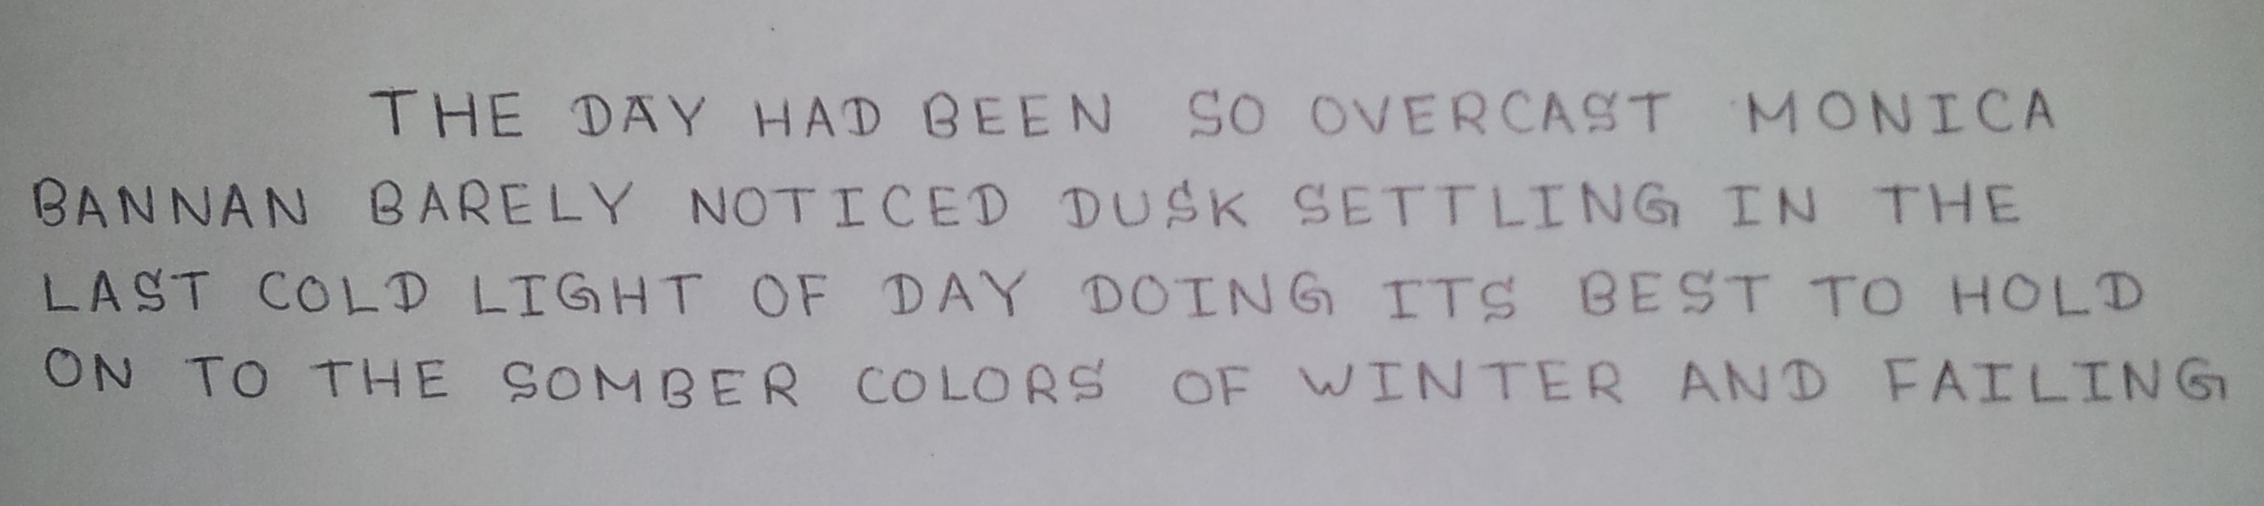 THE DAY HAD BEEN SO OVERCAST MONICA
BANNAN BARELY NOTICED DUSK SETTLING IN THE
LAST COLD LIGHT OF DAY DOING ITS BEST TO HOLD
ON TO THE SOMBER COLORS OF WINTER AND FAILING